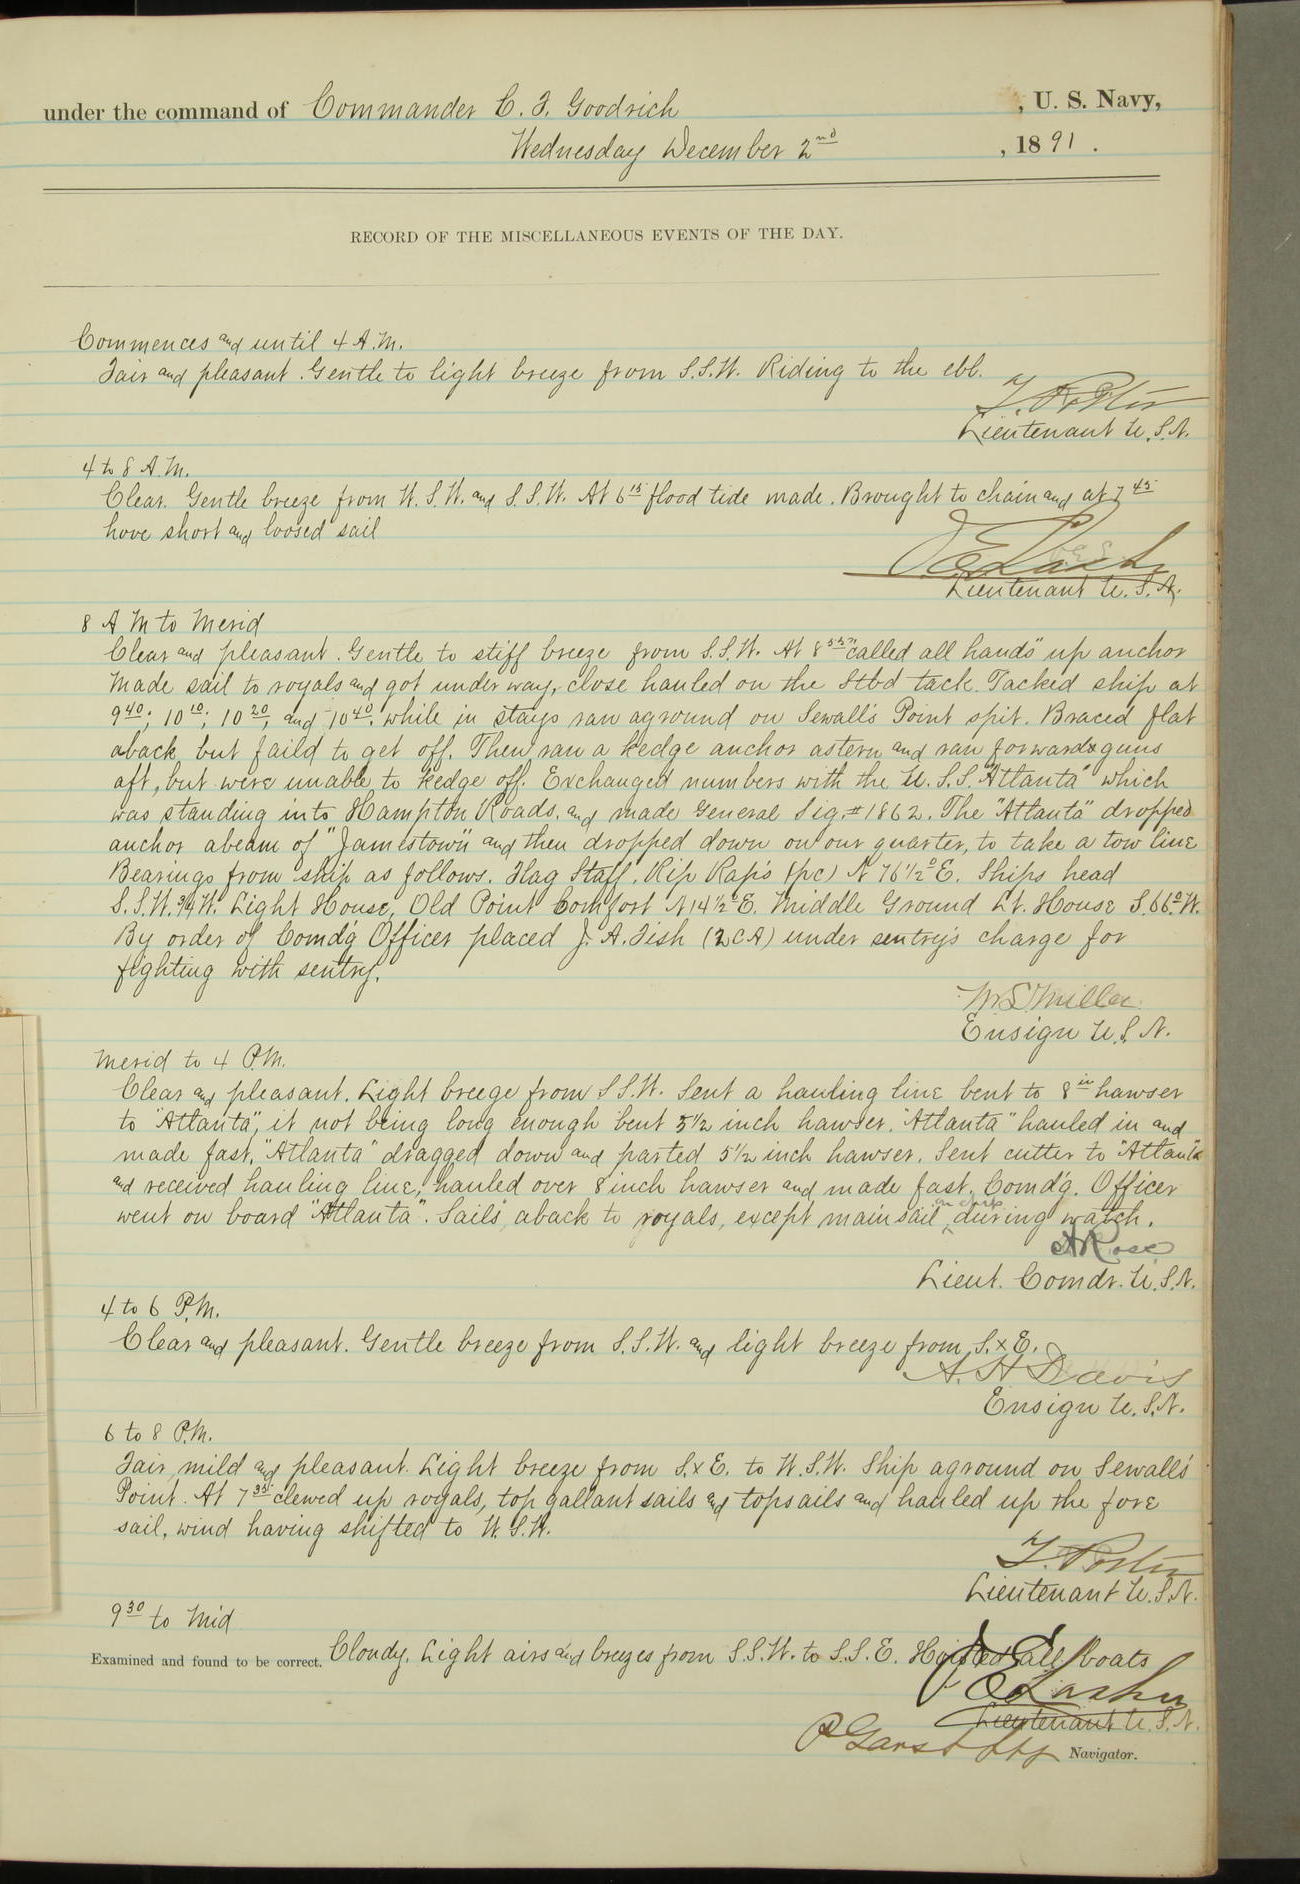 under the command of Commander C. F. Goodrich , U. S. Navy,
Wednesday December 2nd , 1891 .
RECORD OF THE MISCELLANEOUS EVENTS OF THE DAY.
Commences and until 4 A.M.
Fair and pleasant. Gentle to light breeze from S.S.W. Riding to the ebb.
Lieutenant U.S.N.
4 to 8 A.M.
Clear. Gentle breeze from W.S.W. and S.S.W. At 6 15 flood tide made. Brought to chain and at 7 45
hove short and loosed sail
Lieutenant U.S.N.
8 A M to Merid
Clear and pleasant. Gentle to stiff breeze from S.S.W. At 8 55 "called all hands" up anchor
Made sail to royals and got under way, close hauled on the Stbd tack. Tacked ship at
9 40; 10 10; 10 20, and 10 40, while in stays ran aground on Sewall's Point spit. Braced flat
aback but faild to get off. Then ran a kedge anchor astern and ran forward guns
aft, but were unable to kedge off. Exchanged numbers with the U.S.S. "Atlanta" which
was standing into Hampton Roads, and made General Sig. # 1862. The "Atlanta" dropped
anchor abeam of "Jamestown" and then dropped down on our quarter, to take a tow line
Bearings from ship as follows. Flag Staff, Rip Rap's (pc) N 76 1/2° E. Ships head
S.S.W. 3/4 W. Light House, Old Point Comfort N 14 1/2° E. Middle Ground Lt. House S. 66° W.
By order of Comd'g Officer placed J. A. Fish (2CA) under sentry's charge for
fighting with sentry.
M L Miller
Ensign U.S.N.
Merid to 4 P.M.
Clear and pleasant. Light breeze from S S.W. Sent a hauling line bent to 8 in hawser
to "Atlanta", it not being long enough bent 5 1/2 inch hawser. "Atlanta" hauled in and
made fast. "Atlanta" dragged down and parted 5 1/2 inch hawser. Sent cutter to "Atlanta"
and received hauling line, hauled over 8 inch hawser and made fast. Comd'g. Officer
went on board "Atlanta". Sails aback to royals, except mainsail during watch.
A Rose
Lieut. Comdr. U.S.N.
4 to 6 P.M.
Clear and pleasant. Gentle breeze from S.S.W. and light breeze from S.xE.
A. H Davis
Ensign U.S.N.
6 to 8 P.M.
Fair mild and pleasant. Light breeze from S.xE. to W.S.W. Ship aground on Sewalls'
Point. At 7 35 clewed up royals, top gallant sails and topsails and hauled up the fore
sail, wind having shifted to W.S.W.
Lieutenant U.S.N.
9 30 to Mid
Cloudy, Light airs and breezes from S.S.W. to S.S.E. Hoisted all boats
Examined and found to be correct.
Lieutenant U.S.N.
Navigator.